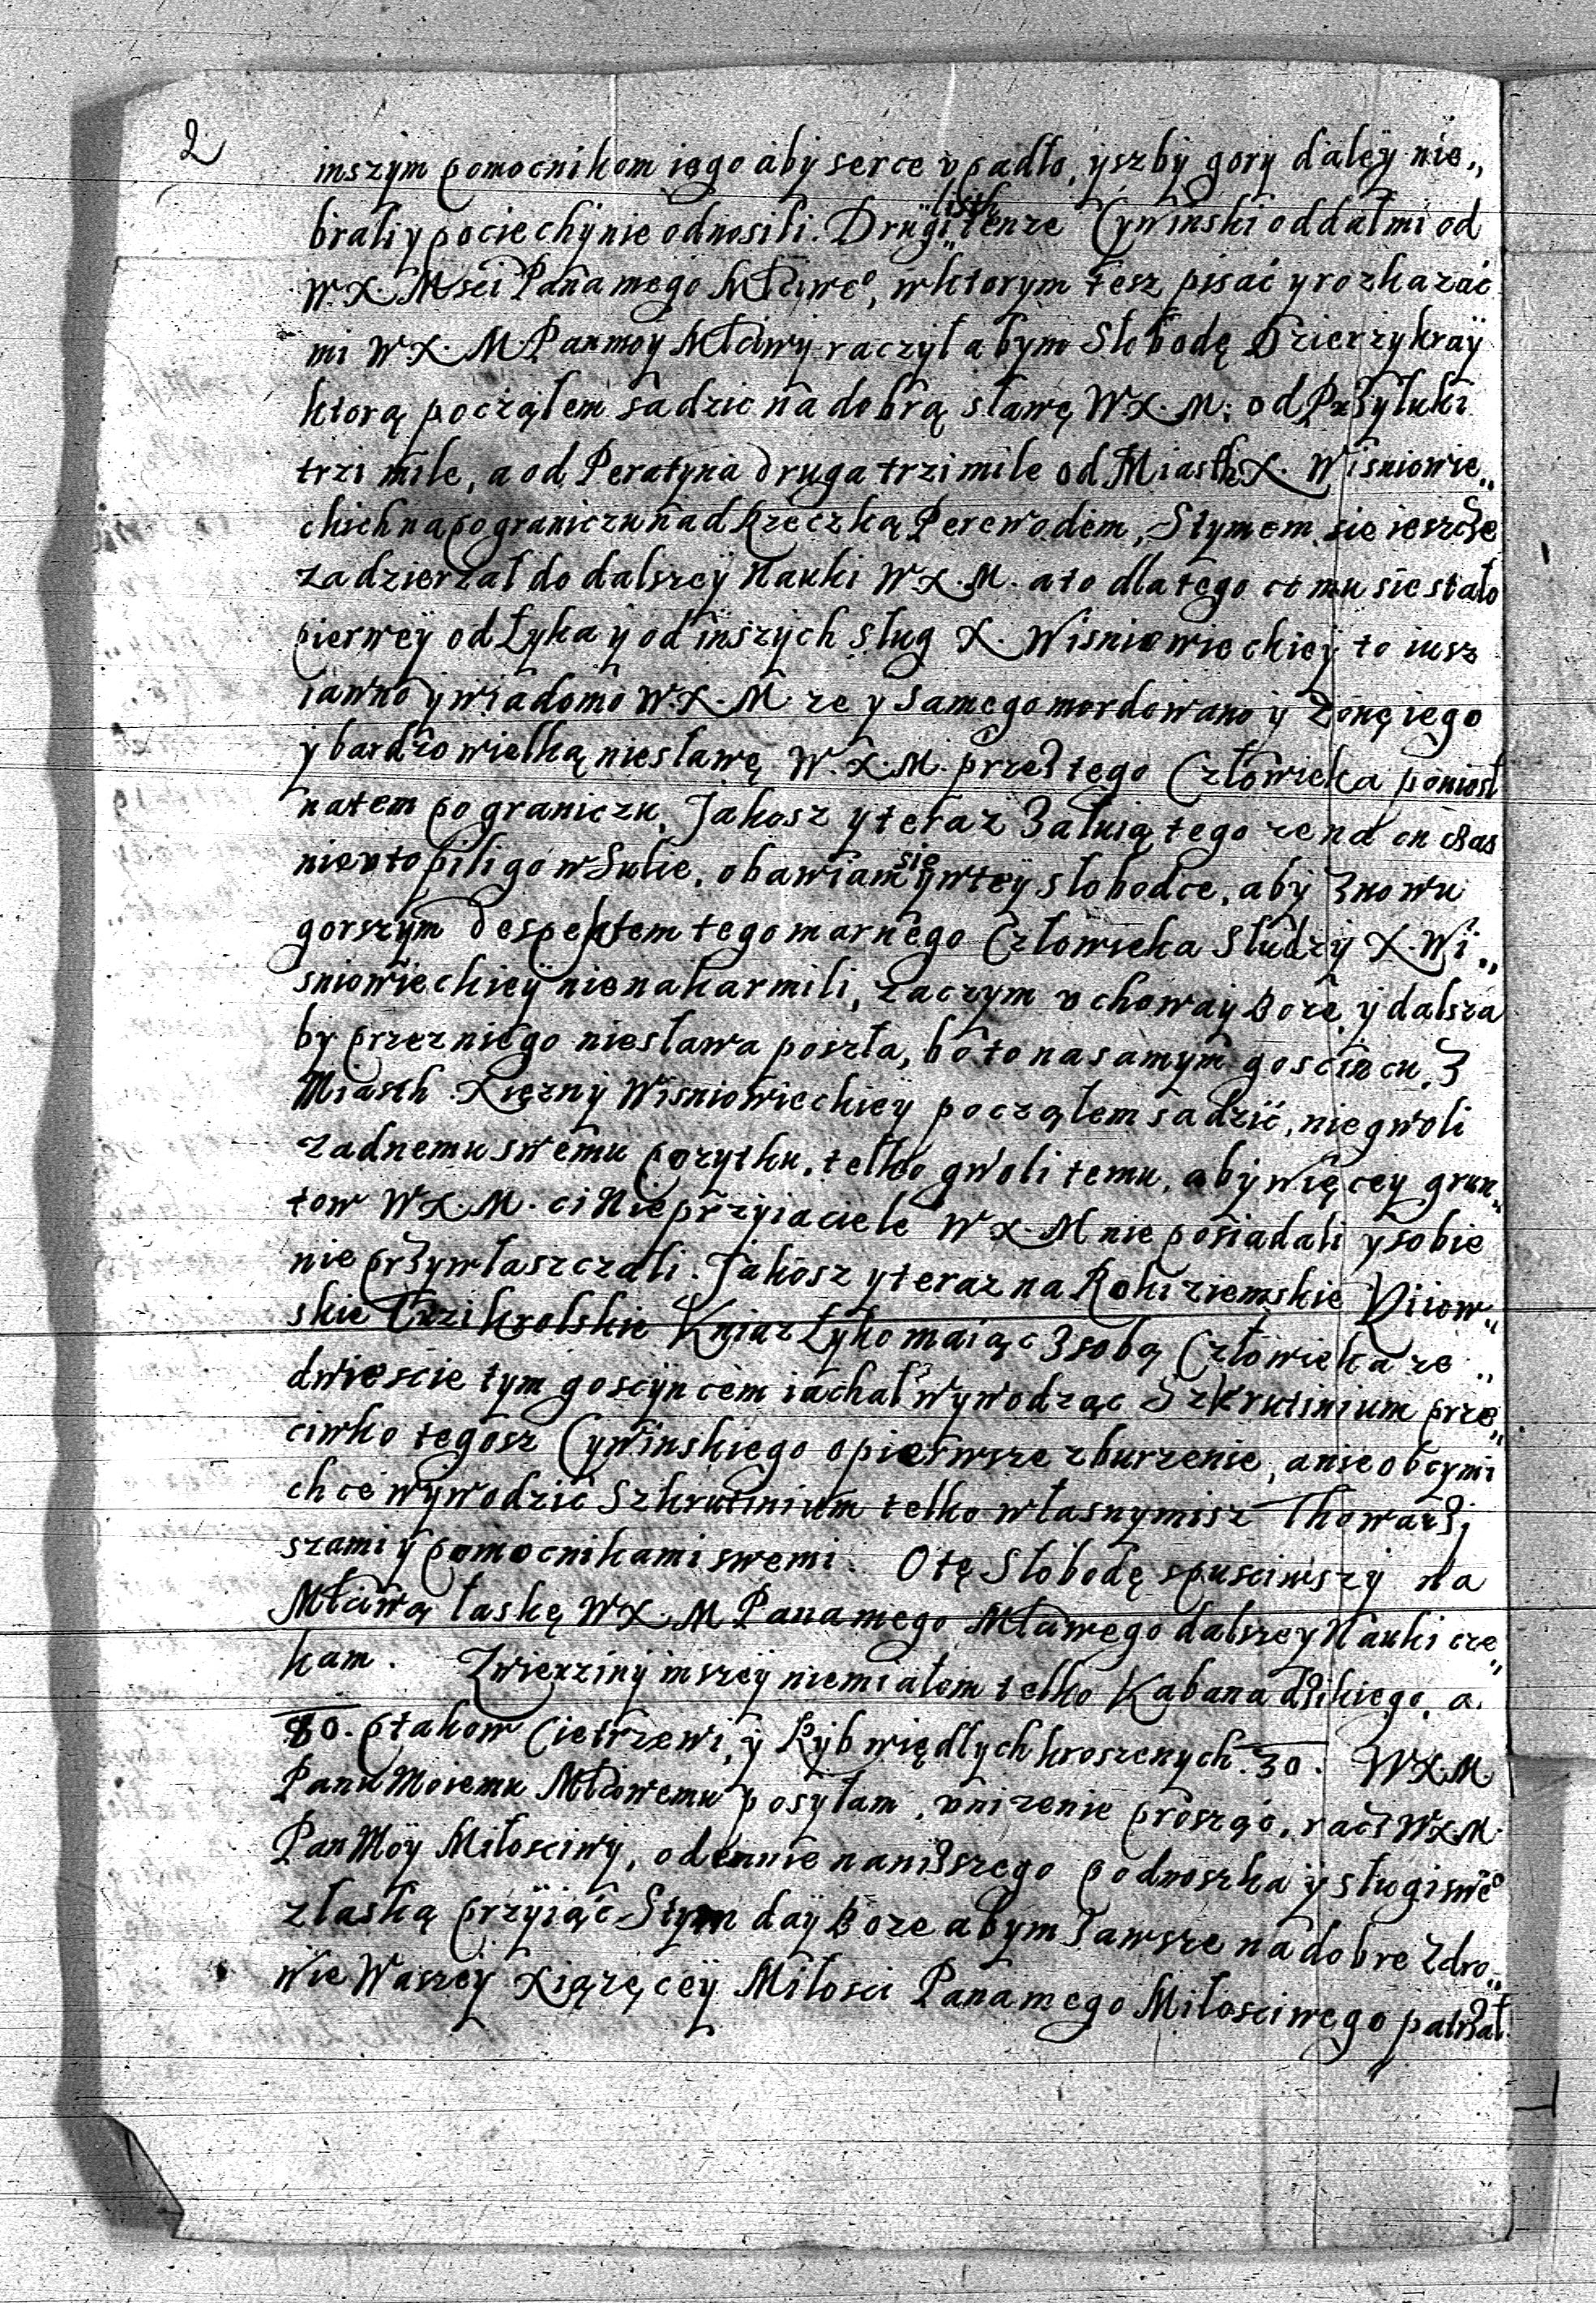 2
inszym pomocnikom iego aby serce vpadło, yszby gory daley nie„
brali y pociechy nie odnosili. Drugi listh tenze Cywinski oddał mi od
W. X. Msci Pana mego Młciwe°, w ktorym tesz pisać y rozkazać
mi W X. M Pan moy Młciwy raczył abym Słobodę Dzierzykray
ktorą począłem sadzic na dobrą sławę W X. M. od Przyłuki
trzi mile, a od Peratyna druga trzi mile od Miasth X. Wisniowie„
ckich na pograniczu nad Rzeczką Perewodem, Stymem sie iescze
zadzierzał do dalszey Nauki W X. M. a to dla tego co mu sie stało
pierwey od Łyka y od inszych sług X. Wisniowieckiey to iusz
iawno y wiadomo W. X. M ze y samego mordowano y zonę iego
y bardzo wielką niesławę W. X. M. przes tego Człowieka poniosł
na tem pograniczu, Jakosz y teraz załuią tego ze na on czas
nie vtopili go w Sulie, obawiam sie y w tey słobodce, aby znowu
gorszym despektem tego marnego Człowieka Słudzy X. Wi„
sniowieckiey nie nakarmili, zaczym vchoway Boze, y dalsza
by przez niego niesława poszła, bo to na samym goscincu, z
Miasth Xięzny Wisniowieckiey począłem sadzić, nie gwoli
zadnemu swemu pozytku, telko gwoli temu, aby więcey grun„
tow W X. M. ci Nieprzyiaciele W X. M nie posiadali y sobie
nie przywłaszczali. Jakosz y teraz na Roki ziemskie Kiiow„
skie Trzikrolskie Kniaz Łyko maiąc z sobą Człowieka ze„
dwiescie tym goscyncem iachał wywodząc Szkrutinium prze„
ciwko tegosz Cywinskiego o pierwsze zburzenie, a nie obcymi
chce wywodzić Szkrutinium telko własnymisz Thowarzy
szami y pomocnikami swemi. O tę Słobodę spusciwszy na
Młciwą łaskę W X. M Pana mego Młciwego dalszey Nauki cze„
kam. Zwierziny inszey nie miałem telko Kabana dzikiego, a
80. ptakow Cietrzewi, y Ryb więdłych kroszenych. 30. W X M.
Panu Moiemu Młciwemu posyłam, vnizenie prosząc, racz W X M.
Pan Moy Miłosciwy, odemnie naniszszego podnoszka y sługi swe°
z łaską przyiąć Stym day Boze abym zawsze na dobre zdro„
wie Waszey Xiązęcey Miłosci Pana mego Miłosciwego patrzał